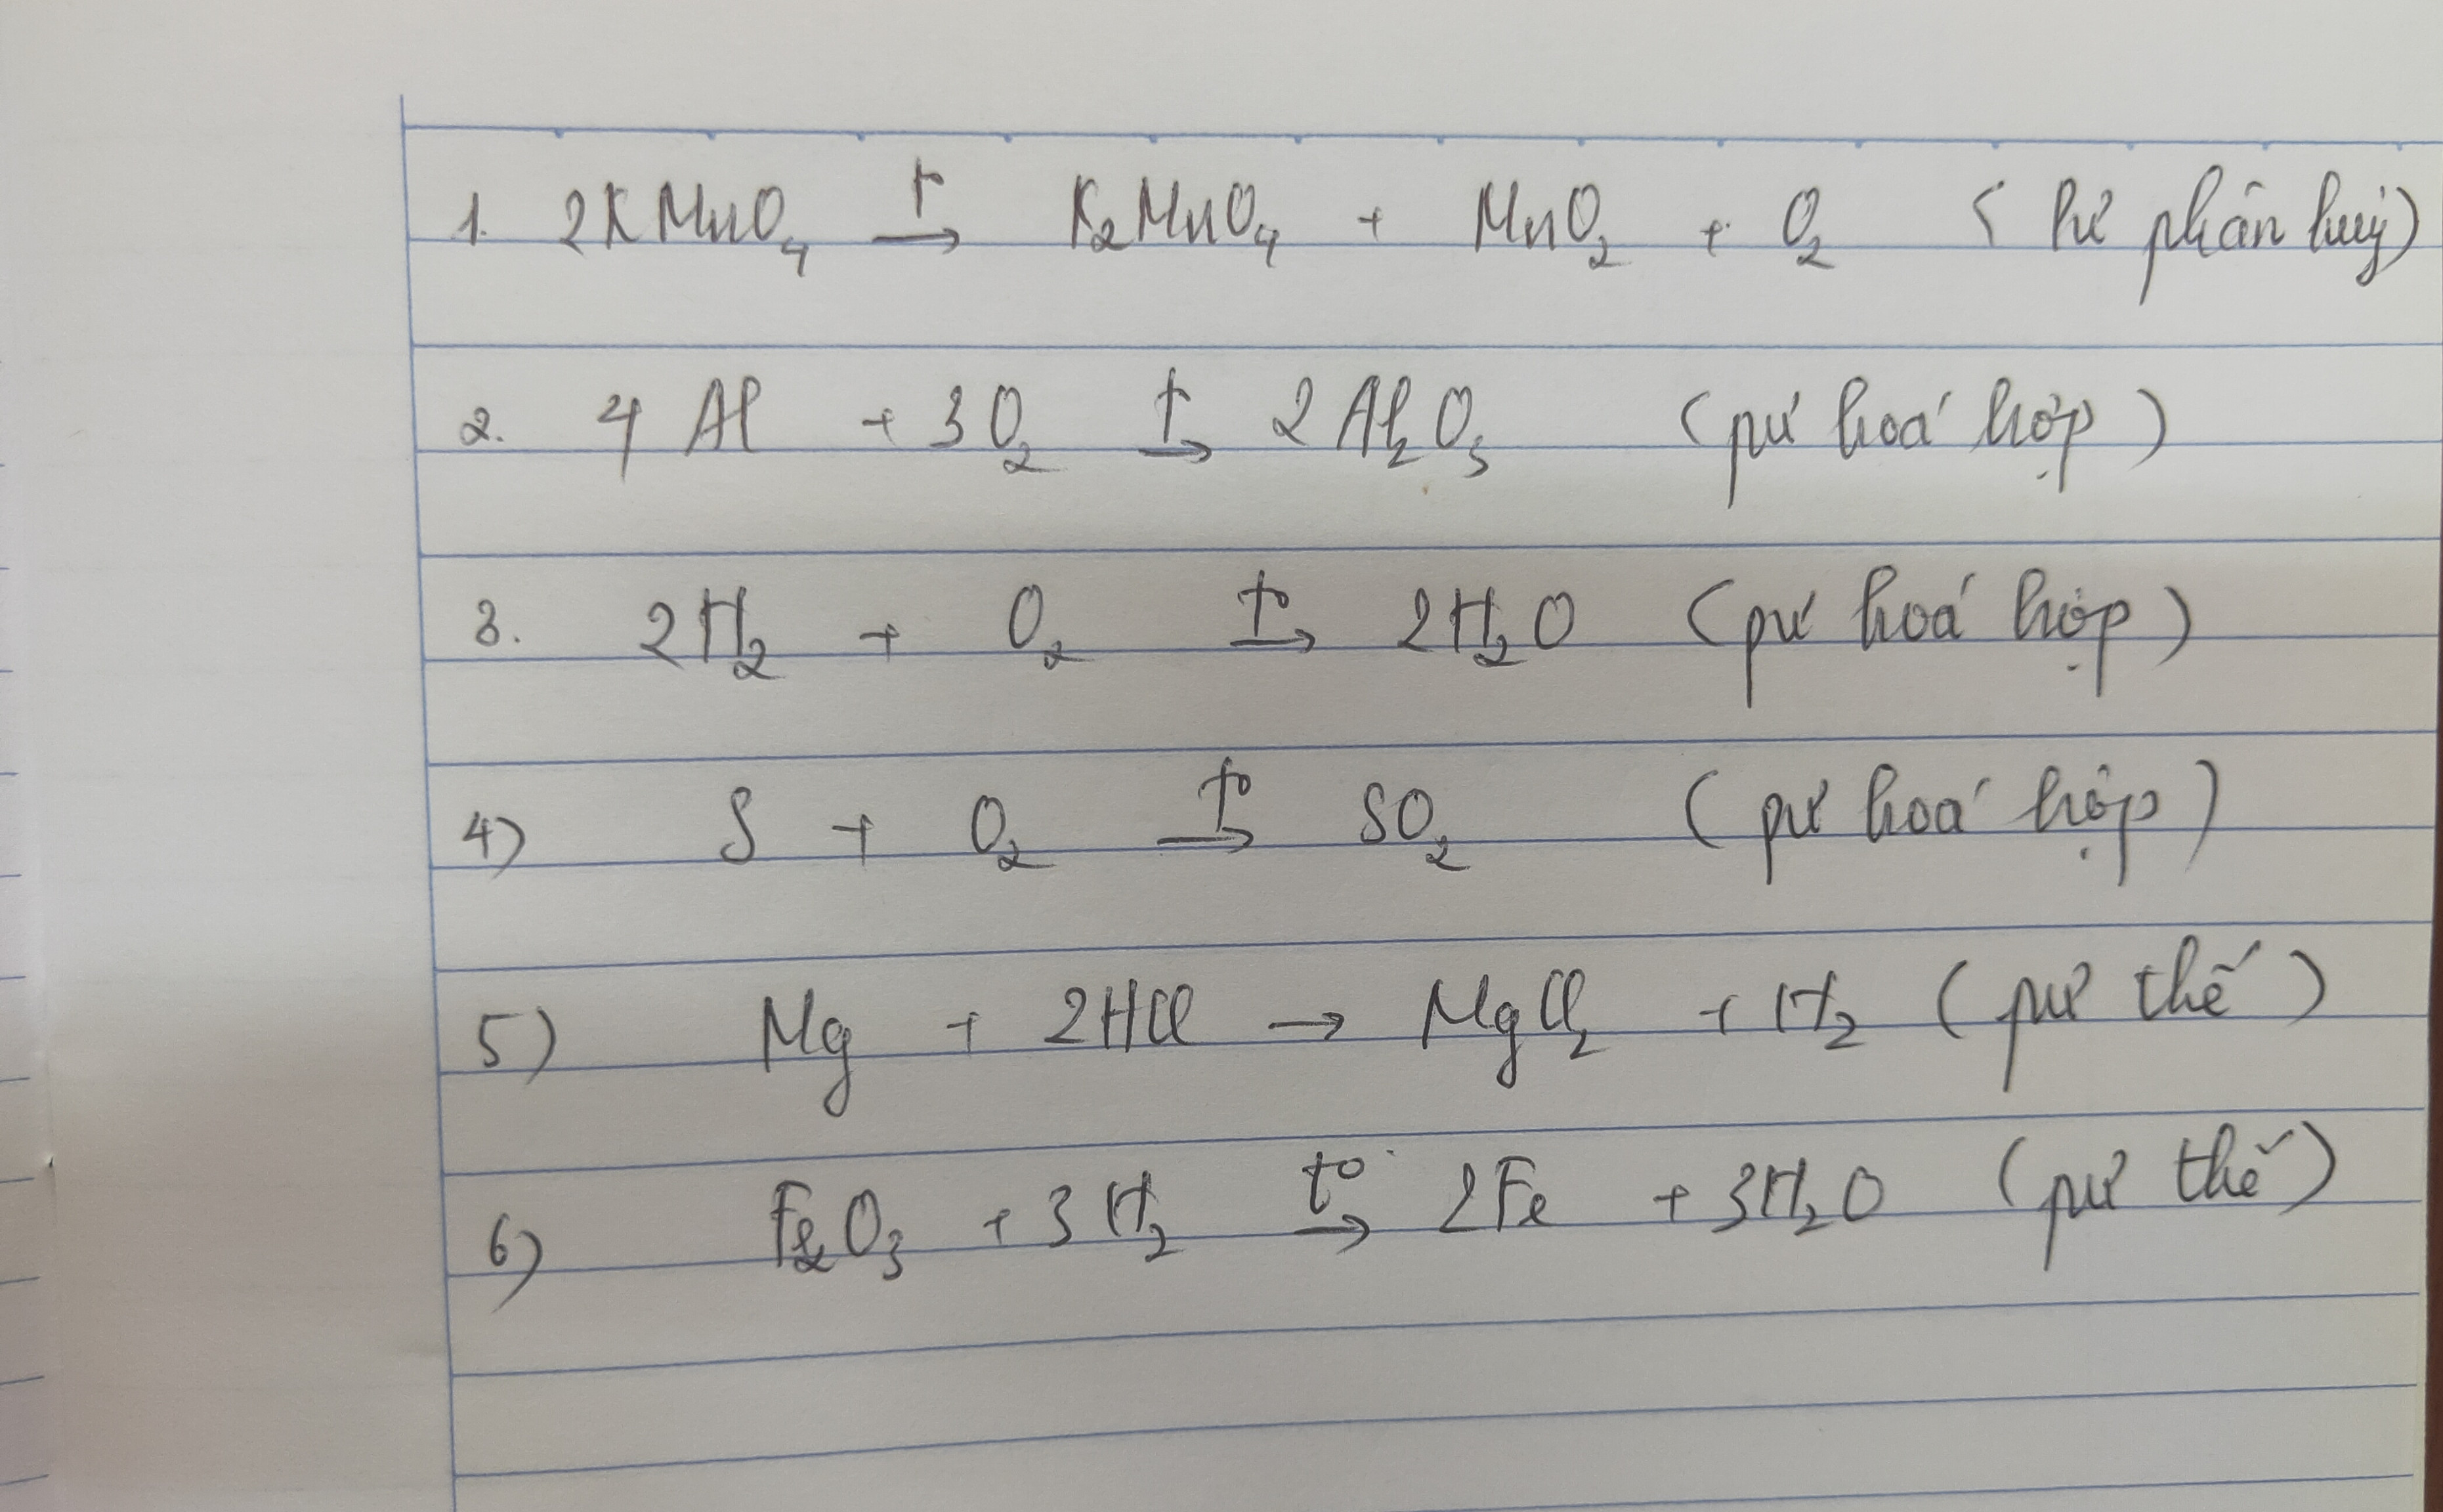 1. 2KMnO₄ t° → K₂MnO₄ + MnO₂ + O₂ ( pư phân huỷ)
2. 4 Al + 3O₂ t° → 2Al₂O₃ (pư hoá hợp)
3. 2H₂ + O₂ t° → 2H₂O (pư hoá hợp)
4) S + O₂ t° → SO₂ (pư hoá hợp)
5) Mg + 2HCl → MgCl₂ + H₂ (pư thế)
6) Fe₂O₃ + 3H₂ t° → 2Fe + 3H₂O (pư thế)